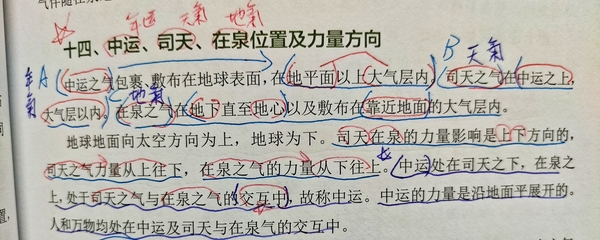 年运 天氣 地氣
十四、中运、司天、在泉位置及力量方向
年氣 A 地氣 B 天氣
中运之气包裹、敷布在地球表面，在地平面以上大气层内。司天之气在中运之上，
大气层以内。在泉之气在地下直至地心以及敷布在靠近地面的大气层内。
地球地面向太空方向为上，地球为下。司天在泉的力量影响是上下方向的，
司天之气力量从上往下，在泉之气的力量从下往上。中运处在司天之下，在泉之
上，处于司天之气与在泉之气的交互中，故称中运。中运的力量是沿地面平展开的。
人和万物均处在中运及司天与在泉气的交互中。